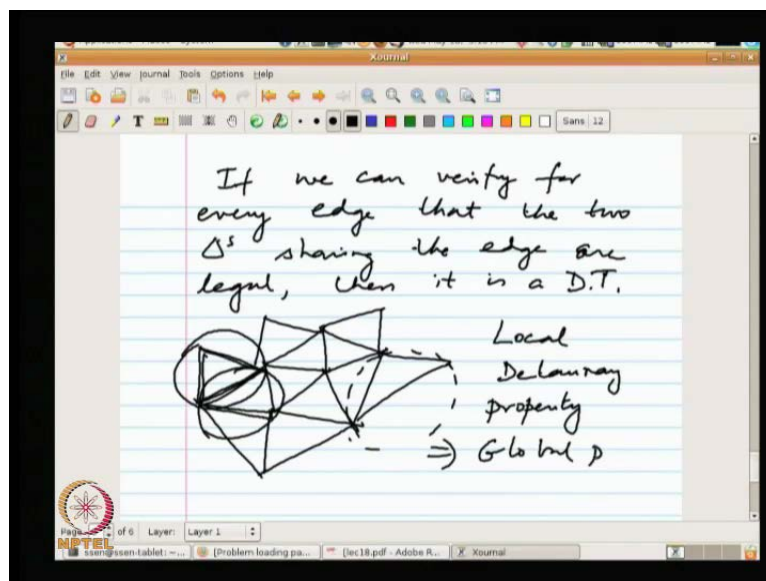 Xournal
File Edit View Journal Tools Options Help
Sans 12
If we can verify for
every edge that the two
Δs sharing the edge are
legal, then it is a D.T.
Local
Delaunay
property
⇒ Global p
NPTEL
of 6 Layer: Layer 1
ssen@ssen-tablet: ~... [Problem loading pa... [lec18.pdf - Adobe R... Xournal